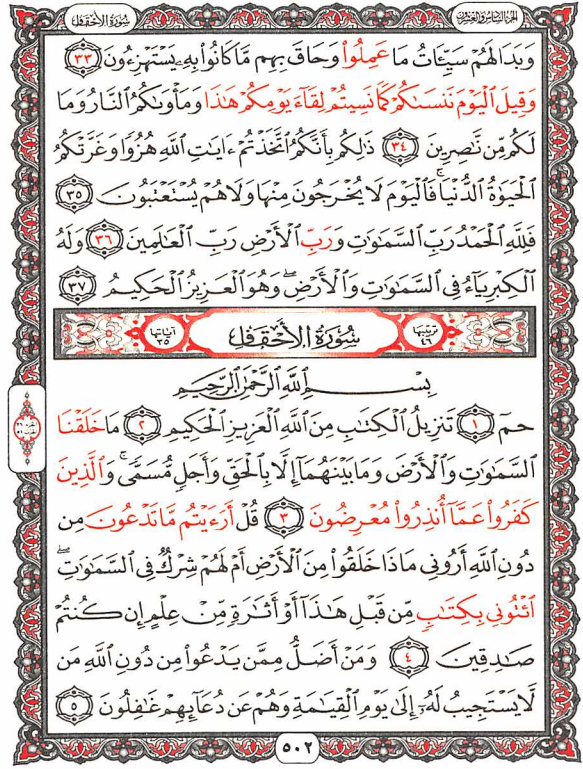 سُورَةُ الأَحْقَافِ
الجزء السادس والعشرون
وَبَدَا لَهُمْ سَيِّـَٔاتُ مَا عَمِلُوا۟ وَحَاقَ بِهِم مَّا كَانُوا۟ بِهِۦ يَسْتَهْزِءُونَ ٣٣
وَقِيلَ ٱلْيَوْمَ نَنسَىٰكُمْ كَمَا نَسِيتُمْ لِقَآءَ يَوْمِكُمْ هَٰذَا وَمَأْوَىٰكُمُ ٱلنَّارُ وَمَا
لَكُم مِّن نَّٰصِرِينَ ٣٤ ذَٰلِكُم بِأَنَّكُمُ ٱتَّخَذْتُمْ ءَايَٰتِ ٱللَّهِ هُزُوًا وَغَرَّتْكُمُ
ٱلْحَيَوٰةُ ٱلدُّنْيَا ۚ فَٱلْيَوْمَ لَا يُخْرَجُونَ مِنْهَا وَلَا هُمْ يُسْتَعْتَبُونَ ٣٥
فَلِلَّهِ ٱلْحَمْدُ رَبِّ ٱلسَّمَٰوَٰتِ وَرَبِّ ٱلْأَرْضِ رَبِّ ٱلْعَٰلَمِينَ ٣٦ وَلَهُ
ٱلْكِبْرِيَآءُ فِى ٱلسَّمَٰوَٰتِ وَٱلْأَرْضِ ۖ وَهُوَ ٱلْعَزِيزُ ٱلْحَكِيمُ ٣٧
ترتيبها ٤٦ سُورَةُ الأَحْقَافِ آياتها ٣٥
بِسْمِ ٱللَّهِ ٱلرَّحْمَٰنِ ٱلرَّحِيمِ
حمٓ ١ تَنزِيلُ ٱلْكِتَٰبِ مِنَ ٱللَّهِ ٱلْعَزِيزِ ٱلْحَكِيمِ ٢ مَا خَلَقْنَا
ٱلسَّمَٰوَٰتِ وَٱلْأَرْضَ وَمَا بَيْنَهُمَآ إِلَّا بِٱلْحَقِّ وَأَجَلٍ مُّسَمًّى ۚ وَٱلَّذِينَ
كَفَرُوا۟ عَمَّآ أُنذِرُوا۟ مُعْرِضُونَ ٣ قُلْ أَرَءَيْتُم مَّا تَدْعُونَ مِن
دُونِ ٱللَّهِ أَرُونِى مَاذَا خَلَقُوا۟ مِنَ ٱلْأَرْضِ أَمْ لَهُمْ شِرْكٌ فِى ٱلسَّمَٰوَٰتِ ۖ
ٱئْتُونِى بِكِتَٰبٍ مِّن قَبْلِ هَٰذَآ أَوْ أَثَٰرَةٍ مِّنْ عِلْمٍ إِن كُنتُمْ
صَٰدِقِينَ ٤ وَمَنْ أَضَلُّ مِمَّن يَدْعُوا۟ مِن دُونِ ٱللَّهِ مَن
لَّا يَسْتَجِيبُ لَهُۥٓ إِلَىٰ يَوْمِ ٱلْقِيَٰمَةِ وَهُمْ عَن دُعَآئِهِمْ غَٰفِلُونَ ٥
٥٠٢